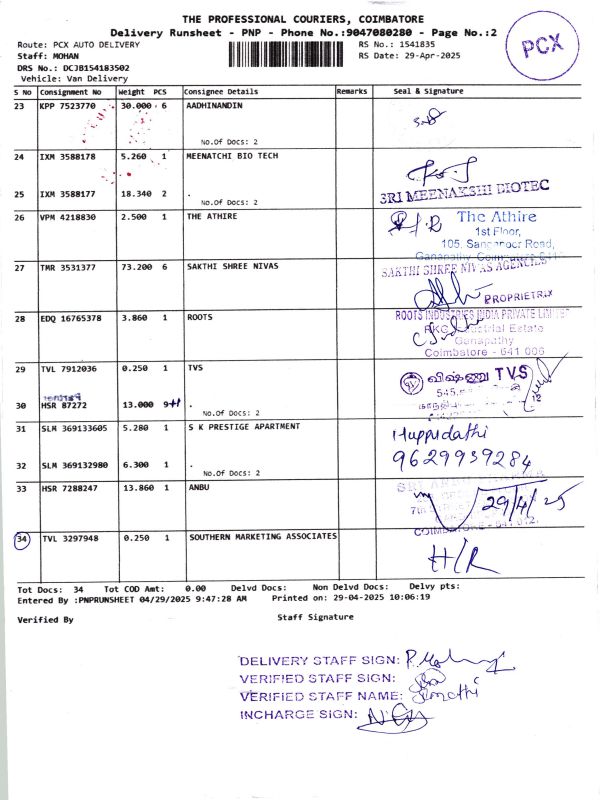 THE PROFESSIONAL COURIERS, COIMBATORE
Delivery Runsheet - PNP - Phone No.:9047080280 - Page No.:2
Route: PCX AUTO DELIVERY
RS No.: 1541835
Staff: MOHAN
RS Date: 29-Apr-2025
DRS No.: DCJB154183502
Vehicle: Van Delivery
PCX
S No Consignment No Weight PCS Consignee Details Remarks Seal & Signature
23 KPP 7523770 30.000 6 AADHINANDIN
No.Of Docs: 2
24 IXM 3588178 5.260 1 MEENATCHI BIO TECH
25 IXM 3588177 18.340 2 .
No.Of Docs: 2
SRI MEENAKSHI BIOTEC
26 VPM 4218830 2.500 1 THE ATHIRE
H/R
The Athire
1st Floor,
105, Sanganoor Road,
Ganapathy, Coimbatore
27 TMR 3531377 73.200 6 SAKTHI SHREE NIVAS
SAKTHI SHREE NIVAS AGENCIES
PROPRIETRIX
28 EDQ 16765378 3.860 1 ROOTS
ROOTS INDUSTRIES INDIA PRIVATE LIMITED
RKG Industrial Estate
Ganapathy
Coimbatore - 641 006
29 TVL 7912036 0.250 1 TVS
விஷ்ணு TVS
545,
30 HSR 87272 13.000 9+1 .
No.Of Docs: 2
12
31 SLM 369133605 5.280 1 S K PRESTIGE APARTMENT
Huppidathi
32 SLM 369132980 6.300 1 .
No.Of Docs: 2
9629939284
33 HSR 7288247 13.860 1 ANBU
29/4/25
34 TVL 3297948 0.250 1 SOUTHERN MARKETING ASSOCIATES
H/R
Tot Docs: 34 Tot COD Amt: 0.00 Delvd Docs: Non Delvd Docs: Delvy pts:
Entered By :PNPRUNSHEET 04/29/2025 9:47:28 AM Printed on: 29-04-2025 10:06:19
Verified By Staff Signature
DELIVERY STAFF SIGN:
VERIFIED STAFF SIGN:
VERIFIED STAFF NAME:
INCHARGE SIGN: